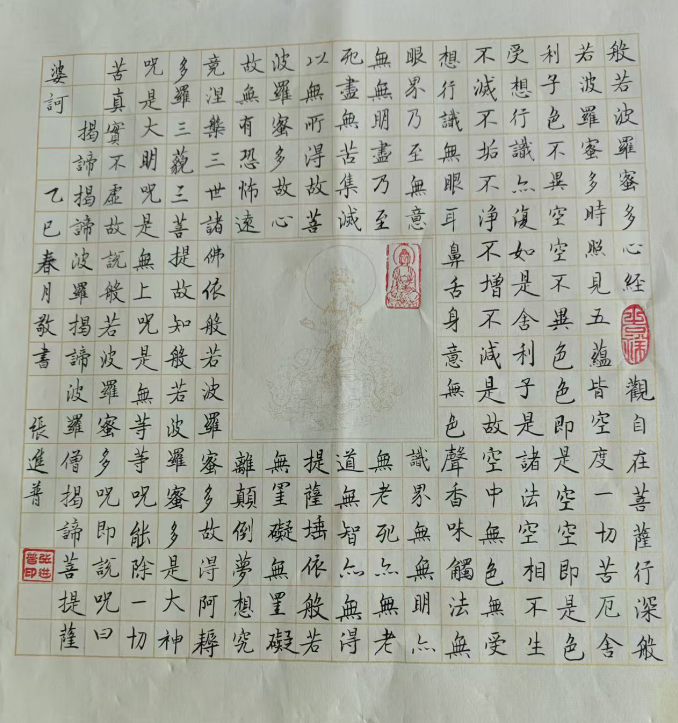 般若波羅蜜多心經 觀自在菩薩行深般
若波羅蜜多時照見五蘊皆空度一切苦厄舍
利子色不異空空不異色色即是空空即是色
受想行識亦復如是舍利子是諸法空相不生
不滅不垢不淨不增不減是故空中無色無受
想行識無眼耳鼻舌身意無色聲香味觸法無
眼界乃至無意識界無無明亦
無無明盡乃至無老死亦無老
死盡無苦集滅道無智亦無得
以無所得故菩提薩埵依般若
波羅蜜多故心無罣礙無罣礙
故無有恐怖遠離顛倒夢想究
竟涅槃三世諸佛依般若波羅蜜多故得阿耨
多羅三藐三菩提故知般若波羅蜜多是大神
呪是大明呪是無上呪是無等等呪能除一切
苦真實不虛故說般若波羅蜜多呪即說呪曰
揭諦揭諦波羅揭諦波羅僧揭諦菩提薩
婆訶 乙巳春月敬書 張進普
吉祥